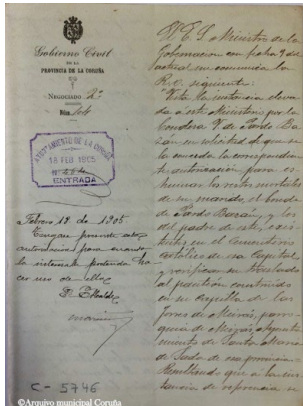 Gobierno Civil
DE LA
PROVINCIA DE LA CORUÑA
NEGOCIADO 2º
Núm. 44
AYUNTAMIENTO DE LA CORUÑA
18 FEB 1905
Nº 484
ENTRADA
Febrero, 18 de 1905
Tengase presente esta
autorización para cuando
la interesada pretenda ha
cer uso de ella.
El Alcalde
El E. S. Ministro de la
Gobernacion con fecha 9 del
actual me comunica la
R. O. siguiente:
"Vista la instancia eleva
da a este Ministerio por la
Condesa V. de Pardo Ba
zán en solicitud de que se
la conceda la correspondien
te autorización para ex
humar los restos mortales
de su marido, el Conde
de Pardo Bazán, y los
del padre de este, exis
tentes en el Cementerio
Católico de esa Capital
y verificar su traslado
al panteón construido
en su Capilla de las
Torres de Meirás, parro
quia de Meirás, Ayunta
miento de Santa María
de Sada de esa provincia.
Resultando que a la ins
tancia de referencia se
C - 5746
©Arquivo municipal Coruña